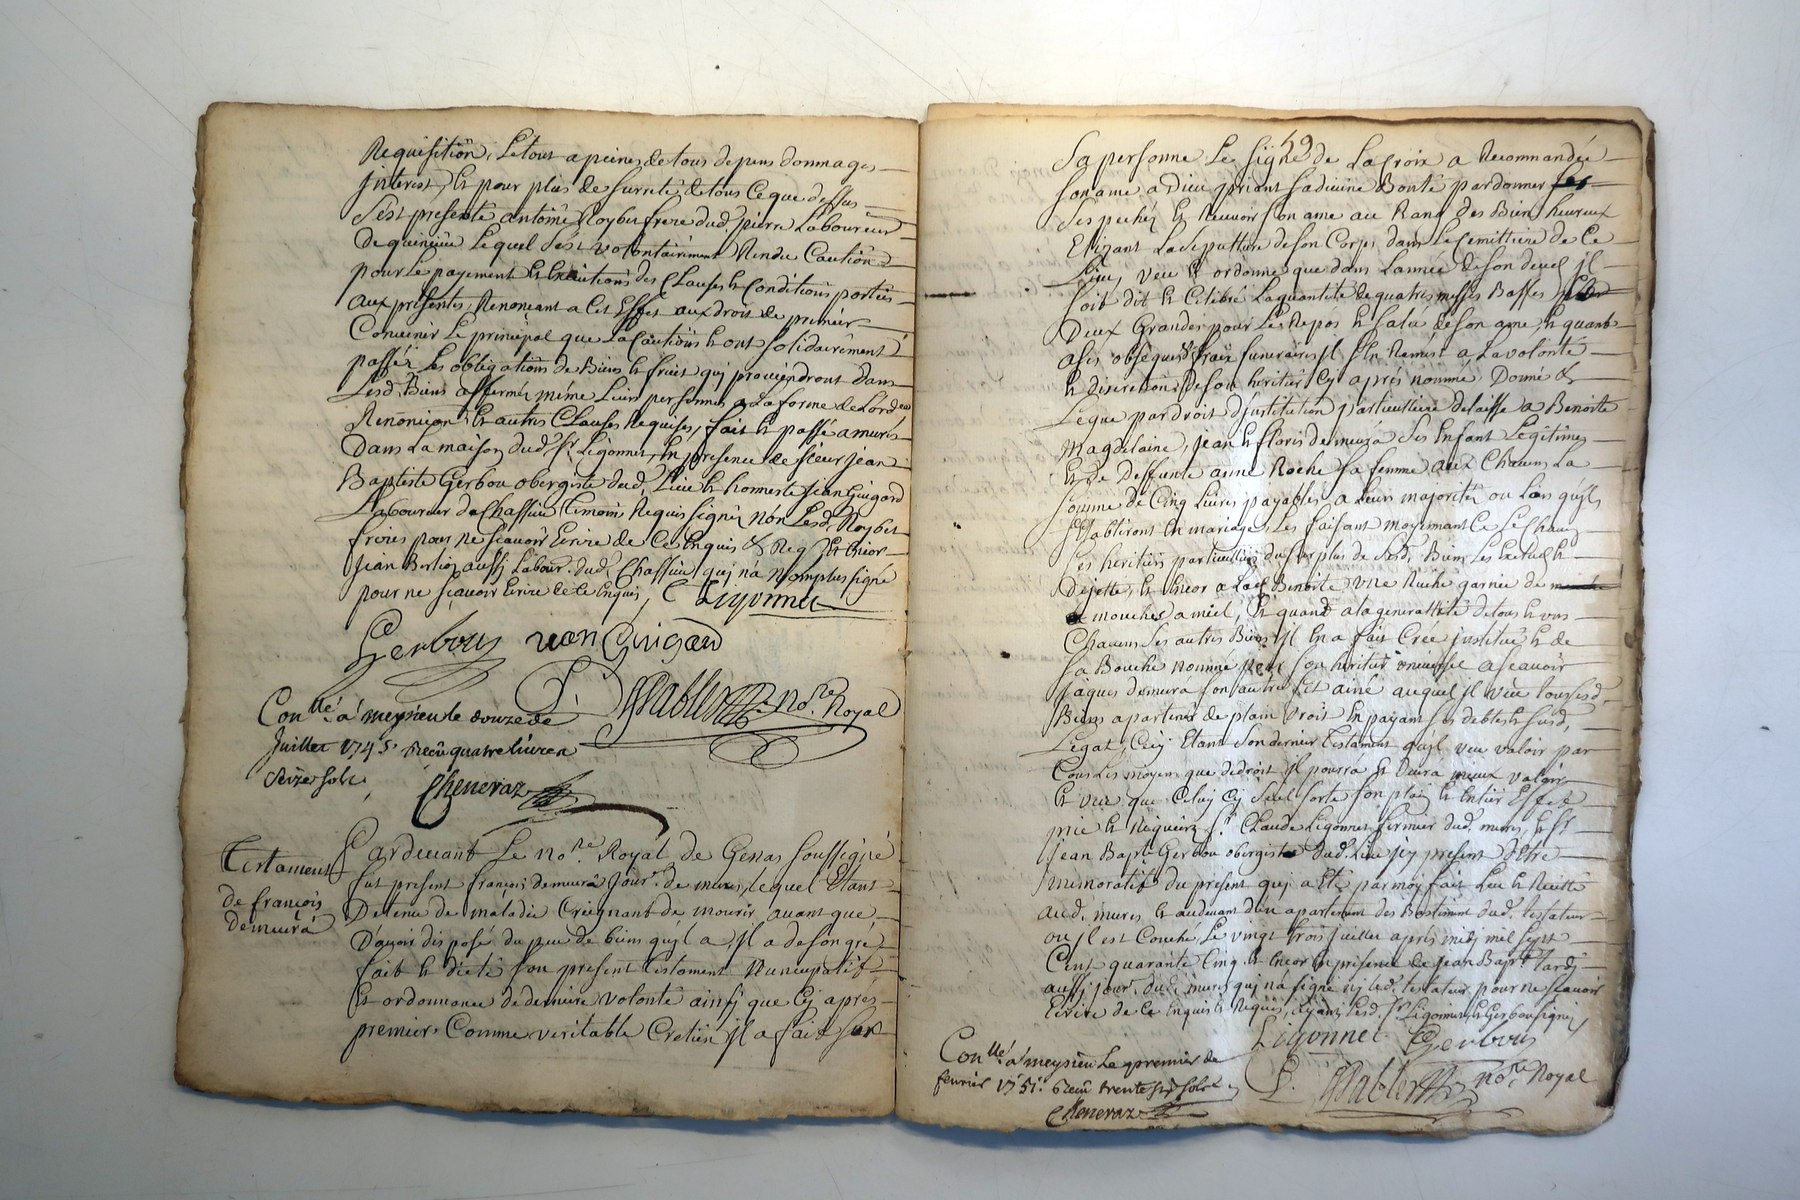 Requisition, Letout a peines detous depens dommages
Interest, Et pour plus de surreté detous Ceque dessus
S'est presenté antoine Roybet frere dud. pierre Laboureur
De quincieu Lequel S'est volontairement Rendu Caution
pour Le payement Et Executions des Clauses Et Conditions portées
aux presentes, Renonçant a Cet Effet aux droit de premier
Convenir Le principal que La Caution Et ont solidairement
passéz Les obligations de Biens Et fruit quj proviendront dans
Lesd. Biens affermé même Leurs personnes a La forme de Lord.ce
Renonçion Et autres Clauses Requises, fait Et passé a mures
Dans La maison dud. Sr. Ligonnet, En presence de sieur Jean
Baptiste Gerbou obergiste dud. Lieu Et honneste Jean Guigard
Laboureur de Chassieu temoins Requis signéz Non Lesd. Roybet
freres pour ne sçavoir Ecrire de Ce Enquis & Req. Et Encor
Jean Berlioz aussj Labour. dud. Chassieu quj n'a Nomplus signé
pour ne sçavoir Ecrire de Ce Enquis, Ligonnet
Gerbou jean Guigard
No.re Royal
Con.llé a meysieu le douze de
Juillet 1745. Reçu quatre livres
Seize sols,
Cheneraz
Testament
de françois
demeura
Pardevant Le no.re Royal de Genas soussigné
fut present françois demeura Jour.r de mures, lequel Etant
Detenu de maladie Creignant de mourir avant que
D'avoir disposé du peu de biens qu'jl a jl a de son gré
fait Et dicté son present testament Nuncupatif
Et ordonnance de derniere volonté ainsj que Cy aprés
premier. Comme veritable Cretien jl a fait sur
59
Sa personne Le signe de La Croix a Recommandée
son ame a Dieu priant sa divine Bonté pardonner
Ses pechéz Et Recevoir son ame au Rang des Bien heureux
Elizant La Sepulture de son Corps dans Le Cemittiere de Ce
Lieu, veu Et ordonne que dans L'année de son deuel jl
soit dit Et Celebré La quantité de quatre messes Basses
Deux Grandes pour Le Repos Et salu de son ame, Et quant
a ses obseques Et fraix funeraires jl s'En Remest a La volonté
Et discretion de son heritier Cy aprés nommé Donne &
Legue par droit D'institution particulliere delaisse a Benoite
Magdelaine, Jean Et floris demeura Ses Enfant Legitimes
Et de Deffunte anne Roche sa femme aux Chacuns La
somme de Cinq Livres payables a Leurs majoritéz ou Lors qu'jls
s'Etabliront En mariages Les faisant moyennant Ce Se Chacun
Ses heritiers particulliers du surplus de Sesd. Biens Les Exclud Et
Dejette, Et Encor a Lad. Benoite une Ruche garnie de
mouches a miel, Et quand a La generallité de tous Et uns
Chacuns Ses autres Biens jl En a fait Crée justitué Et de
sa Bouche nommé son heritier universel a sçavoir
Jaques demeura son autre fils ainé auquel jl veu tous Sesd.
Biens apartenir de plain Droit En payant ses debtes Et susd.
Legat, Cecy Etant Son dernier testament qu'jl veu valoir par
tous Les moyens que de droit jl pourra Et devra mieux valoir
Et veu que Celuy Cy Seul sorte son plain Et Entier Effet
prie Et Requierz Sr. Claude Ligonnet fermier dud. mures, Et Sr.
Jean Bapt. Gerbou obergiste dud. Lieu jcy present d'Etre
memoratif du present quj a Eté par moy fait Leu Et Recitté
aud. mures Et audevant d'un apartement des Bastiment dud. testateur
ou jl est Couché Le vingt trois Juillet aprés midy mil sept
Cent quarante Cinq Et Encor En presence de Jean Bapt. Tardj
aussj jour. dud. mures quj n'a signé nj Led. testateur pour ne sçavoir
Ecrire de Ce Enquis Et Requis, ayant Lesd. Sr. Ligonnet, Et Gerbou signéz
Ligonnet Gerbou
No.re Royal
Con.llé a meysieu Le premier de
fevrier 1751. Reçu trente six sols
Cheneraz